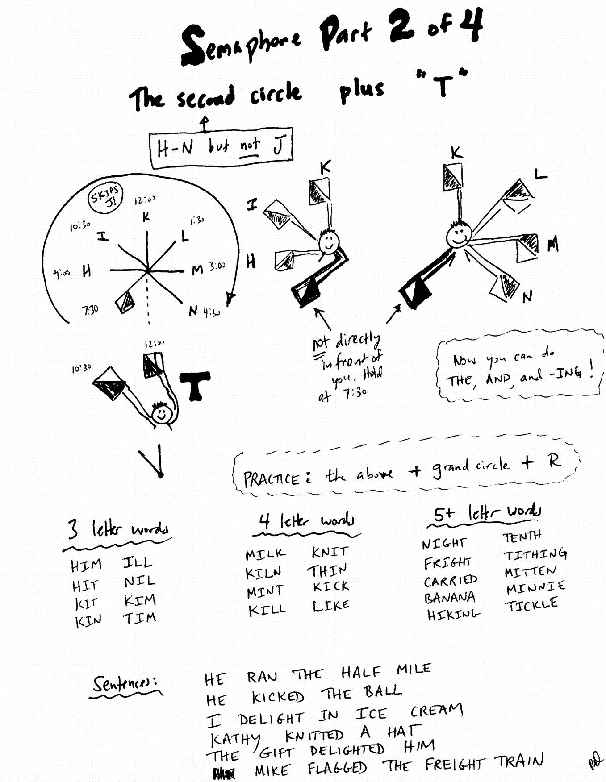 Semaphore Part 2 of 4
The second circle plus "T"
H-N but not J
SKIPS J!
12:00
K
10:30
I
1:30
L
9:00
H
M
3:00
7:30
N 4:30
K
I
H
K
L
M
N
not directly
in front of
you. Hold
at 7:30
Now you can do
THE, AND, and -ING!
10:30
12:00
T
PRACTICE: the above + grand circle + R
3 letter words
HIM ILL
HIT NIL
KIT KIM
KIN TIM
4 letter words
MILK KNIT
KILN THIN
MINT KICK
KILL LIKE
5+ letter words
NIGHT TENTH
FRIGHT TITHING
CARRIED MITTEN
BANANA MINNIE
HIKING TICKLE
Sentences:
HE RAN THE HALF MILE
HE KICKED THE BALL
I DELIGHT IN ICE CREAM
KATHY KNITTED A HAT
THE GIFT DELIGHTED HIM
MIKE FLAGGED THE FREIGHT TRAIN